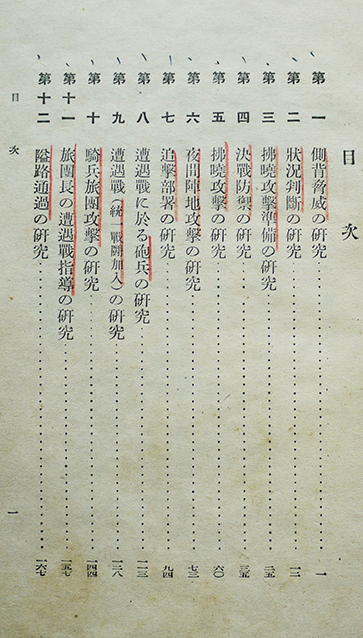 目次
第一 側背脅威の研究 一
第二 狀況判斷の研究 一二
第三 拂曉攻擊準備の研究 二五
第四 決戰防禦の研究 三五
第五 拂曉攻擊の研究 六〇
第六 夜間陣地攻擊の研究 七三
第七 追擊部署の研究 九四
第八 遭遇戰に於る砲兵の研究 一一三
第九 遭遇戰(統一戰鬪加入)の研究 一三八
第十 騎兵旅團攻擊の研究 一四四
第十一 旅團長の遭遇戰指導の研究 一五七
第十二 隘路通過の研究 一六七
目次
一